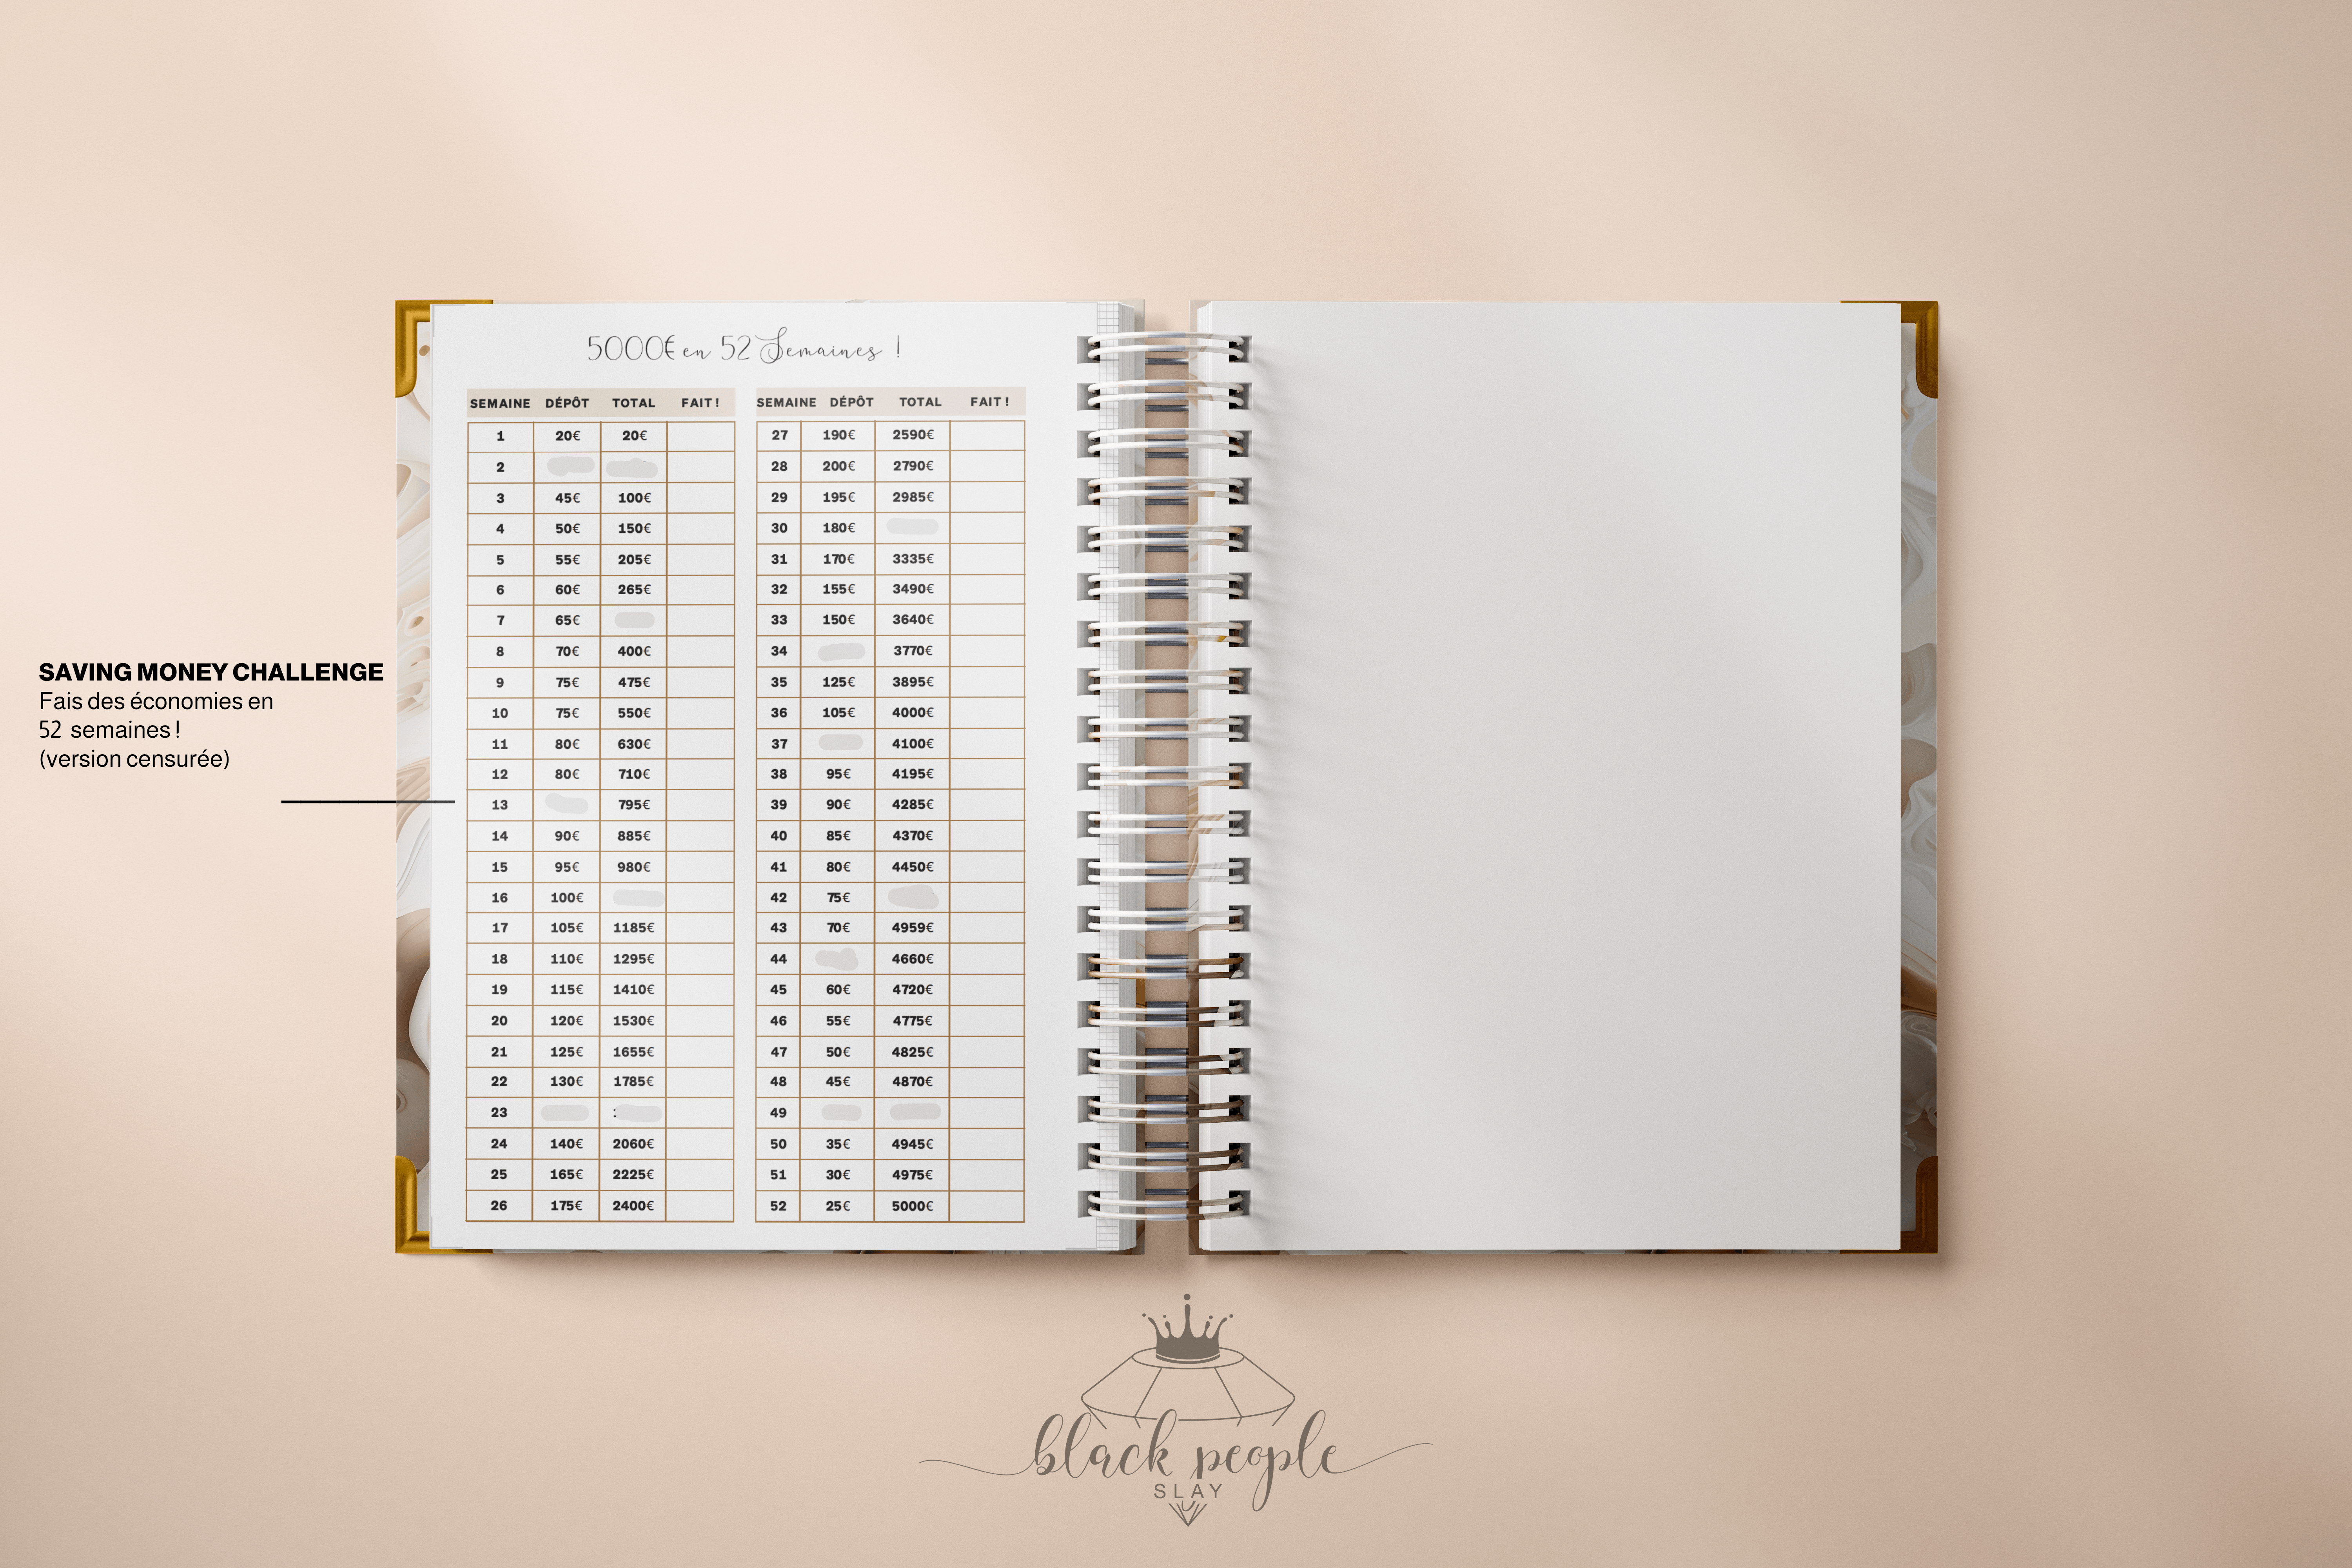 5000€ en 52 Semaines !
SEMAINE DÉPÔT TOTAL FAIT !
1 20€ 20€
2
3 45€ 100€
4 50€ 150€
5 55€ 205€
6 60€ 265€
7 65€
8 70€ 400€
9 75€ 475€
10 75€ 550€
11 80€ 630€
12 80€ 710€
13 795€
14 90€ 885€
15 95€ 980€
16 100€
17 105€ 1185€
18 110€ 1295€
19 115€ 1410€
20 120€ 1530€
21 125€ 1655€
22 130€ 1785€
23
24 140€ 2060€
25 165€ 2225€
26 175€ 2400€
SEMAINE DÉPÔT TOTAL FAIT !
27 190€ 2590€
28 200€ 2790€
29 195€ 2985€
30 180€
31 170€ 3335€
32 155€ 3490€
33 150€ 3640€
34 3770€
35 125€ 3895€
36 105€ 4000€
37 4100€
38 95€ 4195€
39 90€ 4285€
40 85€ 4370€
41 80€ 4450€
42 75€
43 70€ 4959€
44 4660€
45 60€ 4720€
46 55€ 4775€
47 50€ 4825€
48 45€ 4870€
49
50 35€ 4945€
51 30€ 4975€
52 25€ 5000€
SAVING MONEY CHALLENGE
Fais des économies en
52 semaines !
(version censurée)
black people
SLAY